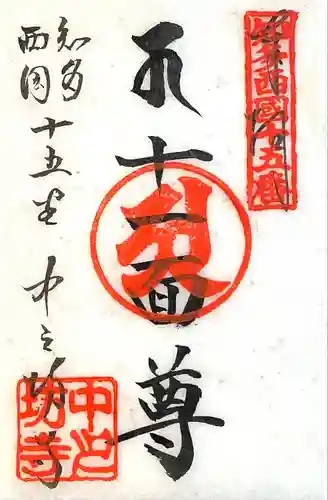 知多西国十五番
十一面尊
中之坊寺
知多西國十五番
中之坊寺